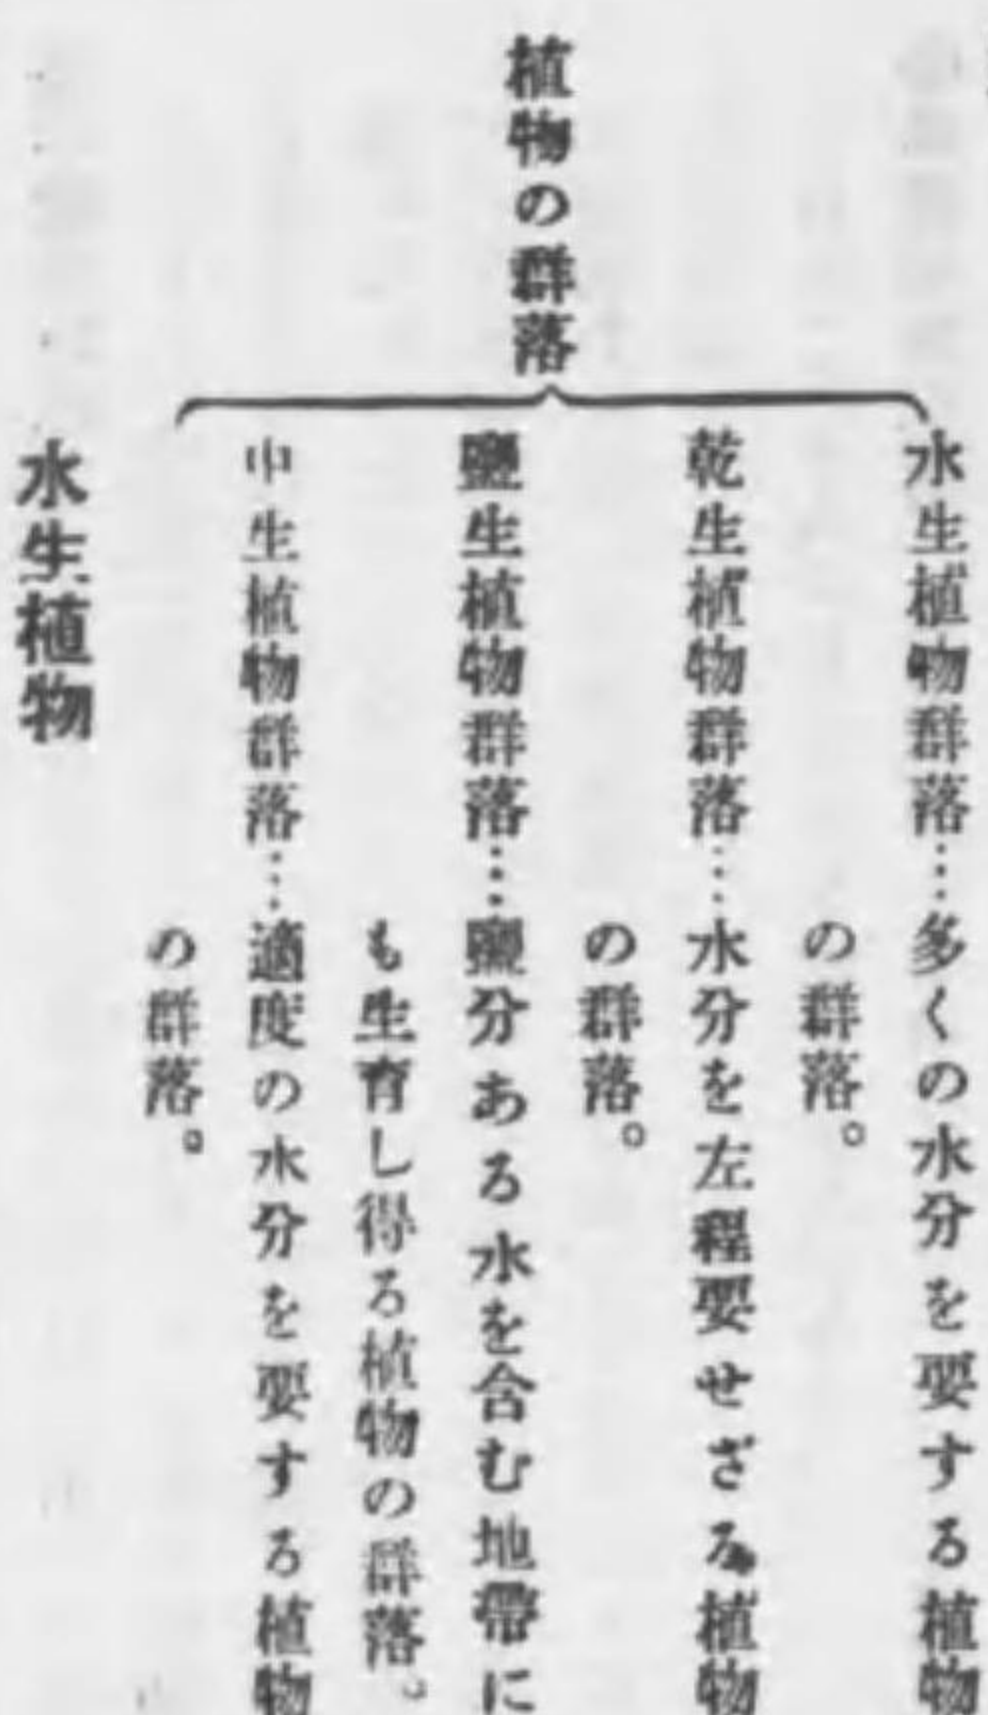 植物の群落
水生植物群落…多くの水分を要する植物
の群落。
乾生植物群落…水分を左程要せざる植物
の群落。
鹽生植物群落…鹽分ある水を含む地帶に
も生育し得る植物の群落。
中生植物群落…適度の水分を要する植物
の群落。
水生植物